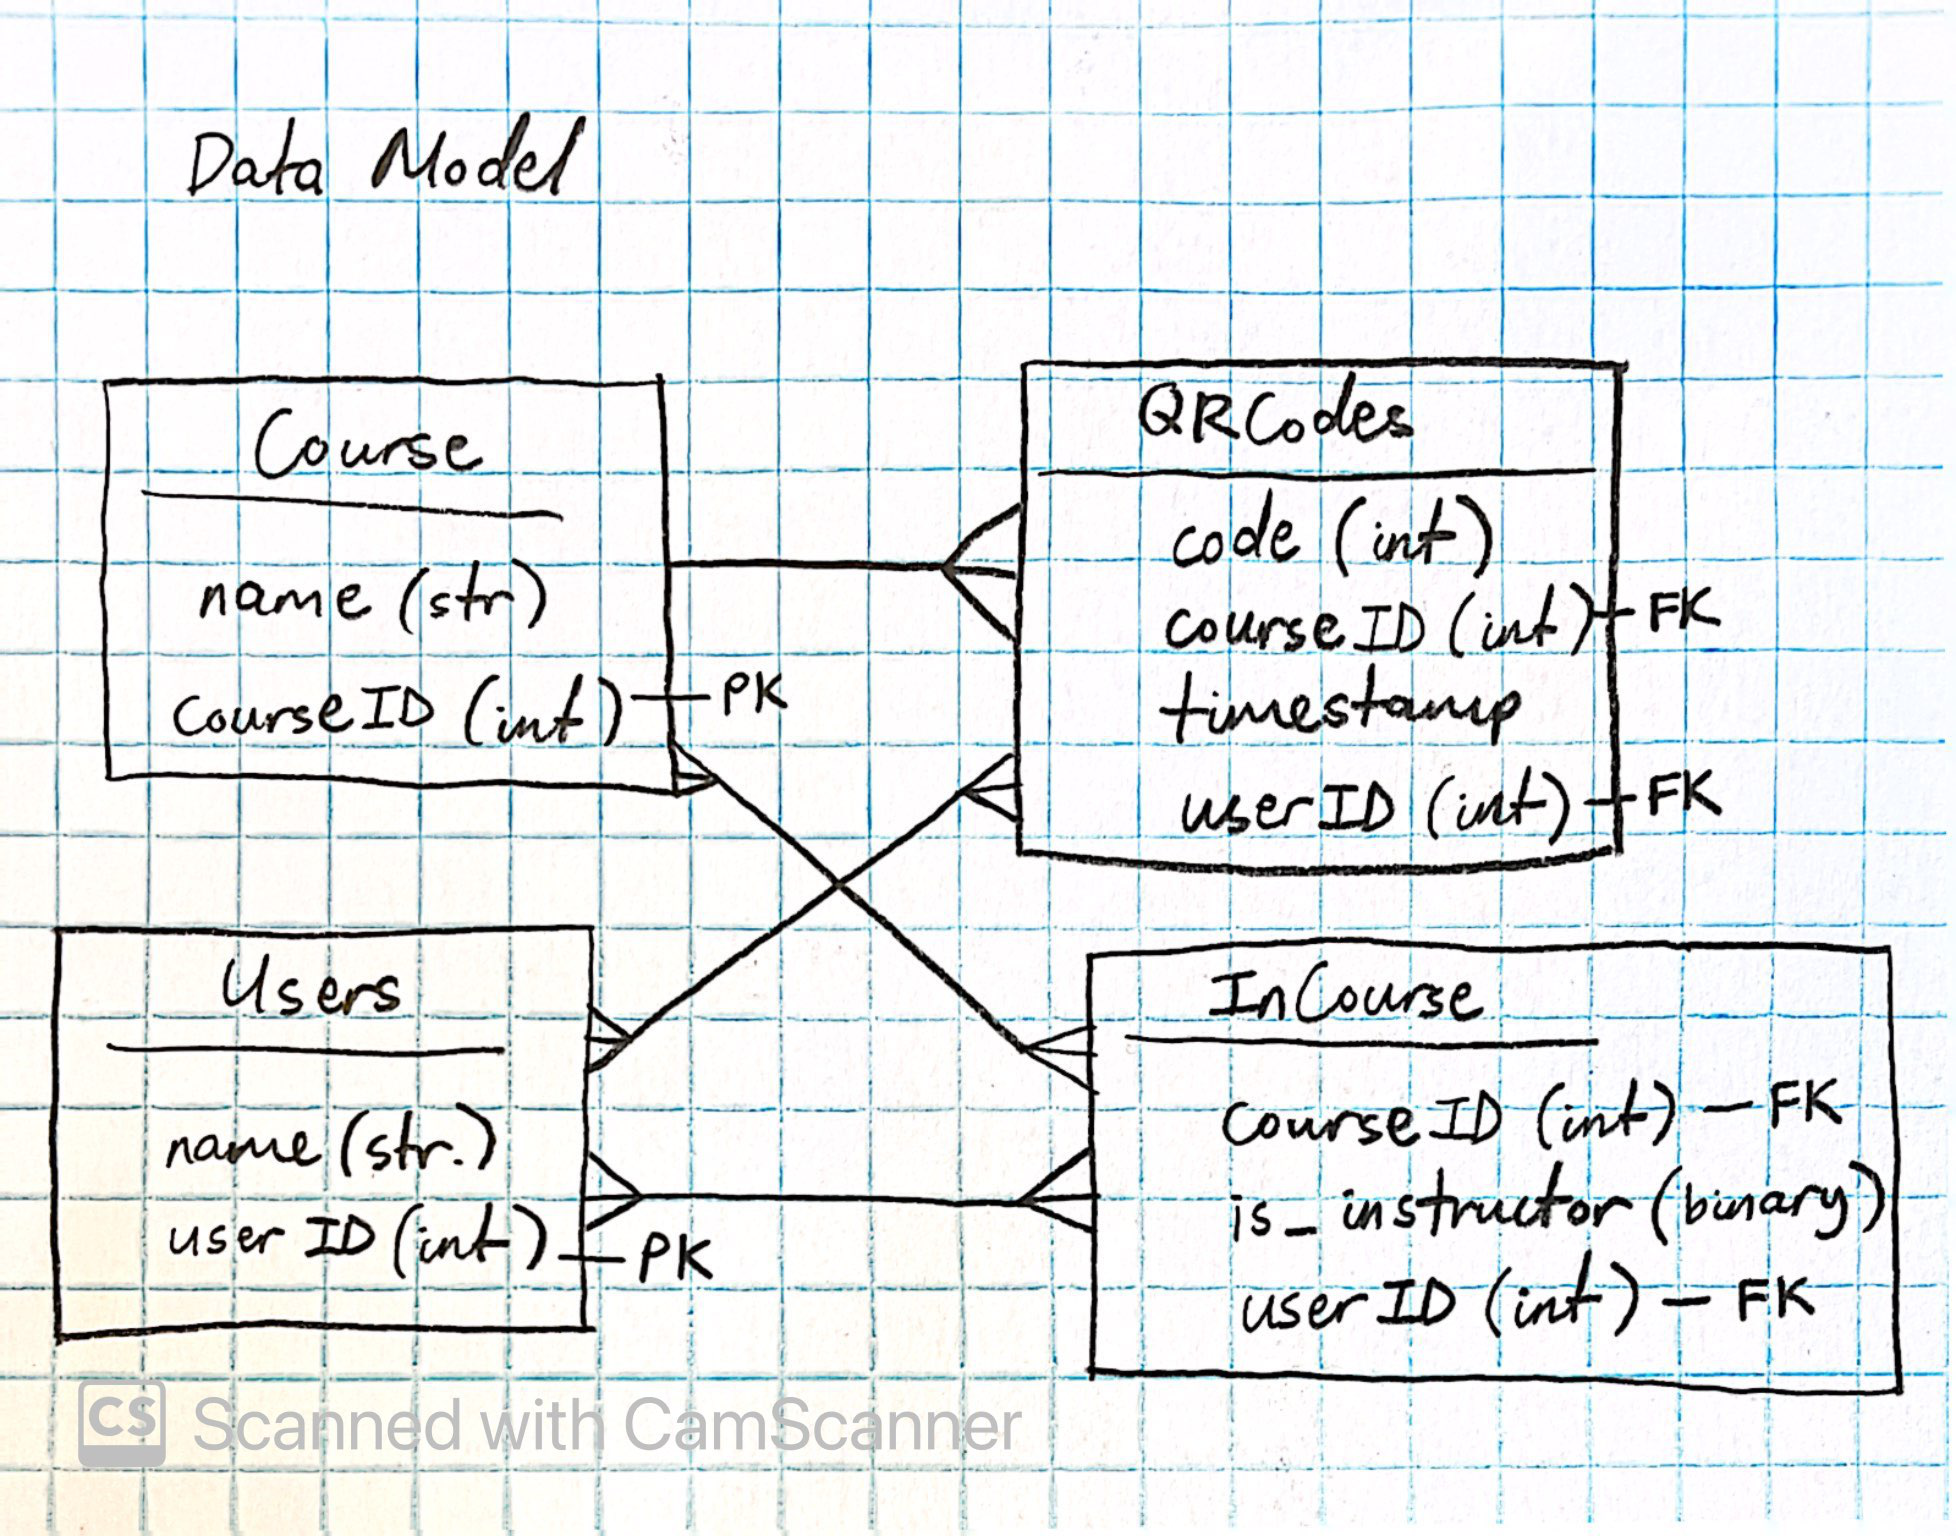 Data Model
Course
name (str)
courseID (int) PK
QRCodes
code (int)
courseID (int) FK
timestamp
userID (int) FK
Users
name (str.)
user ID (int) PK
InCourse
courseID (int) - FK
is_instructor (binary)
userID (int) - FK
CS Scanned with CamScanner